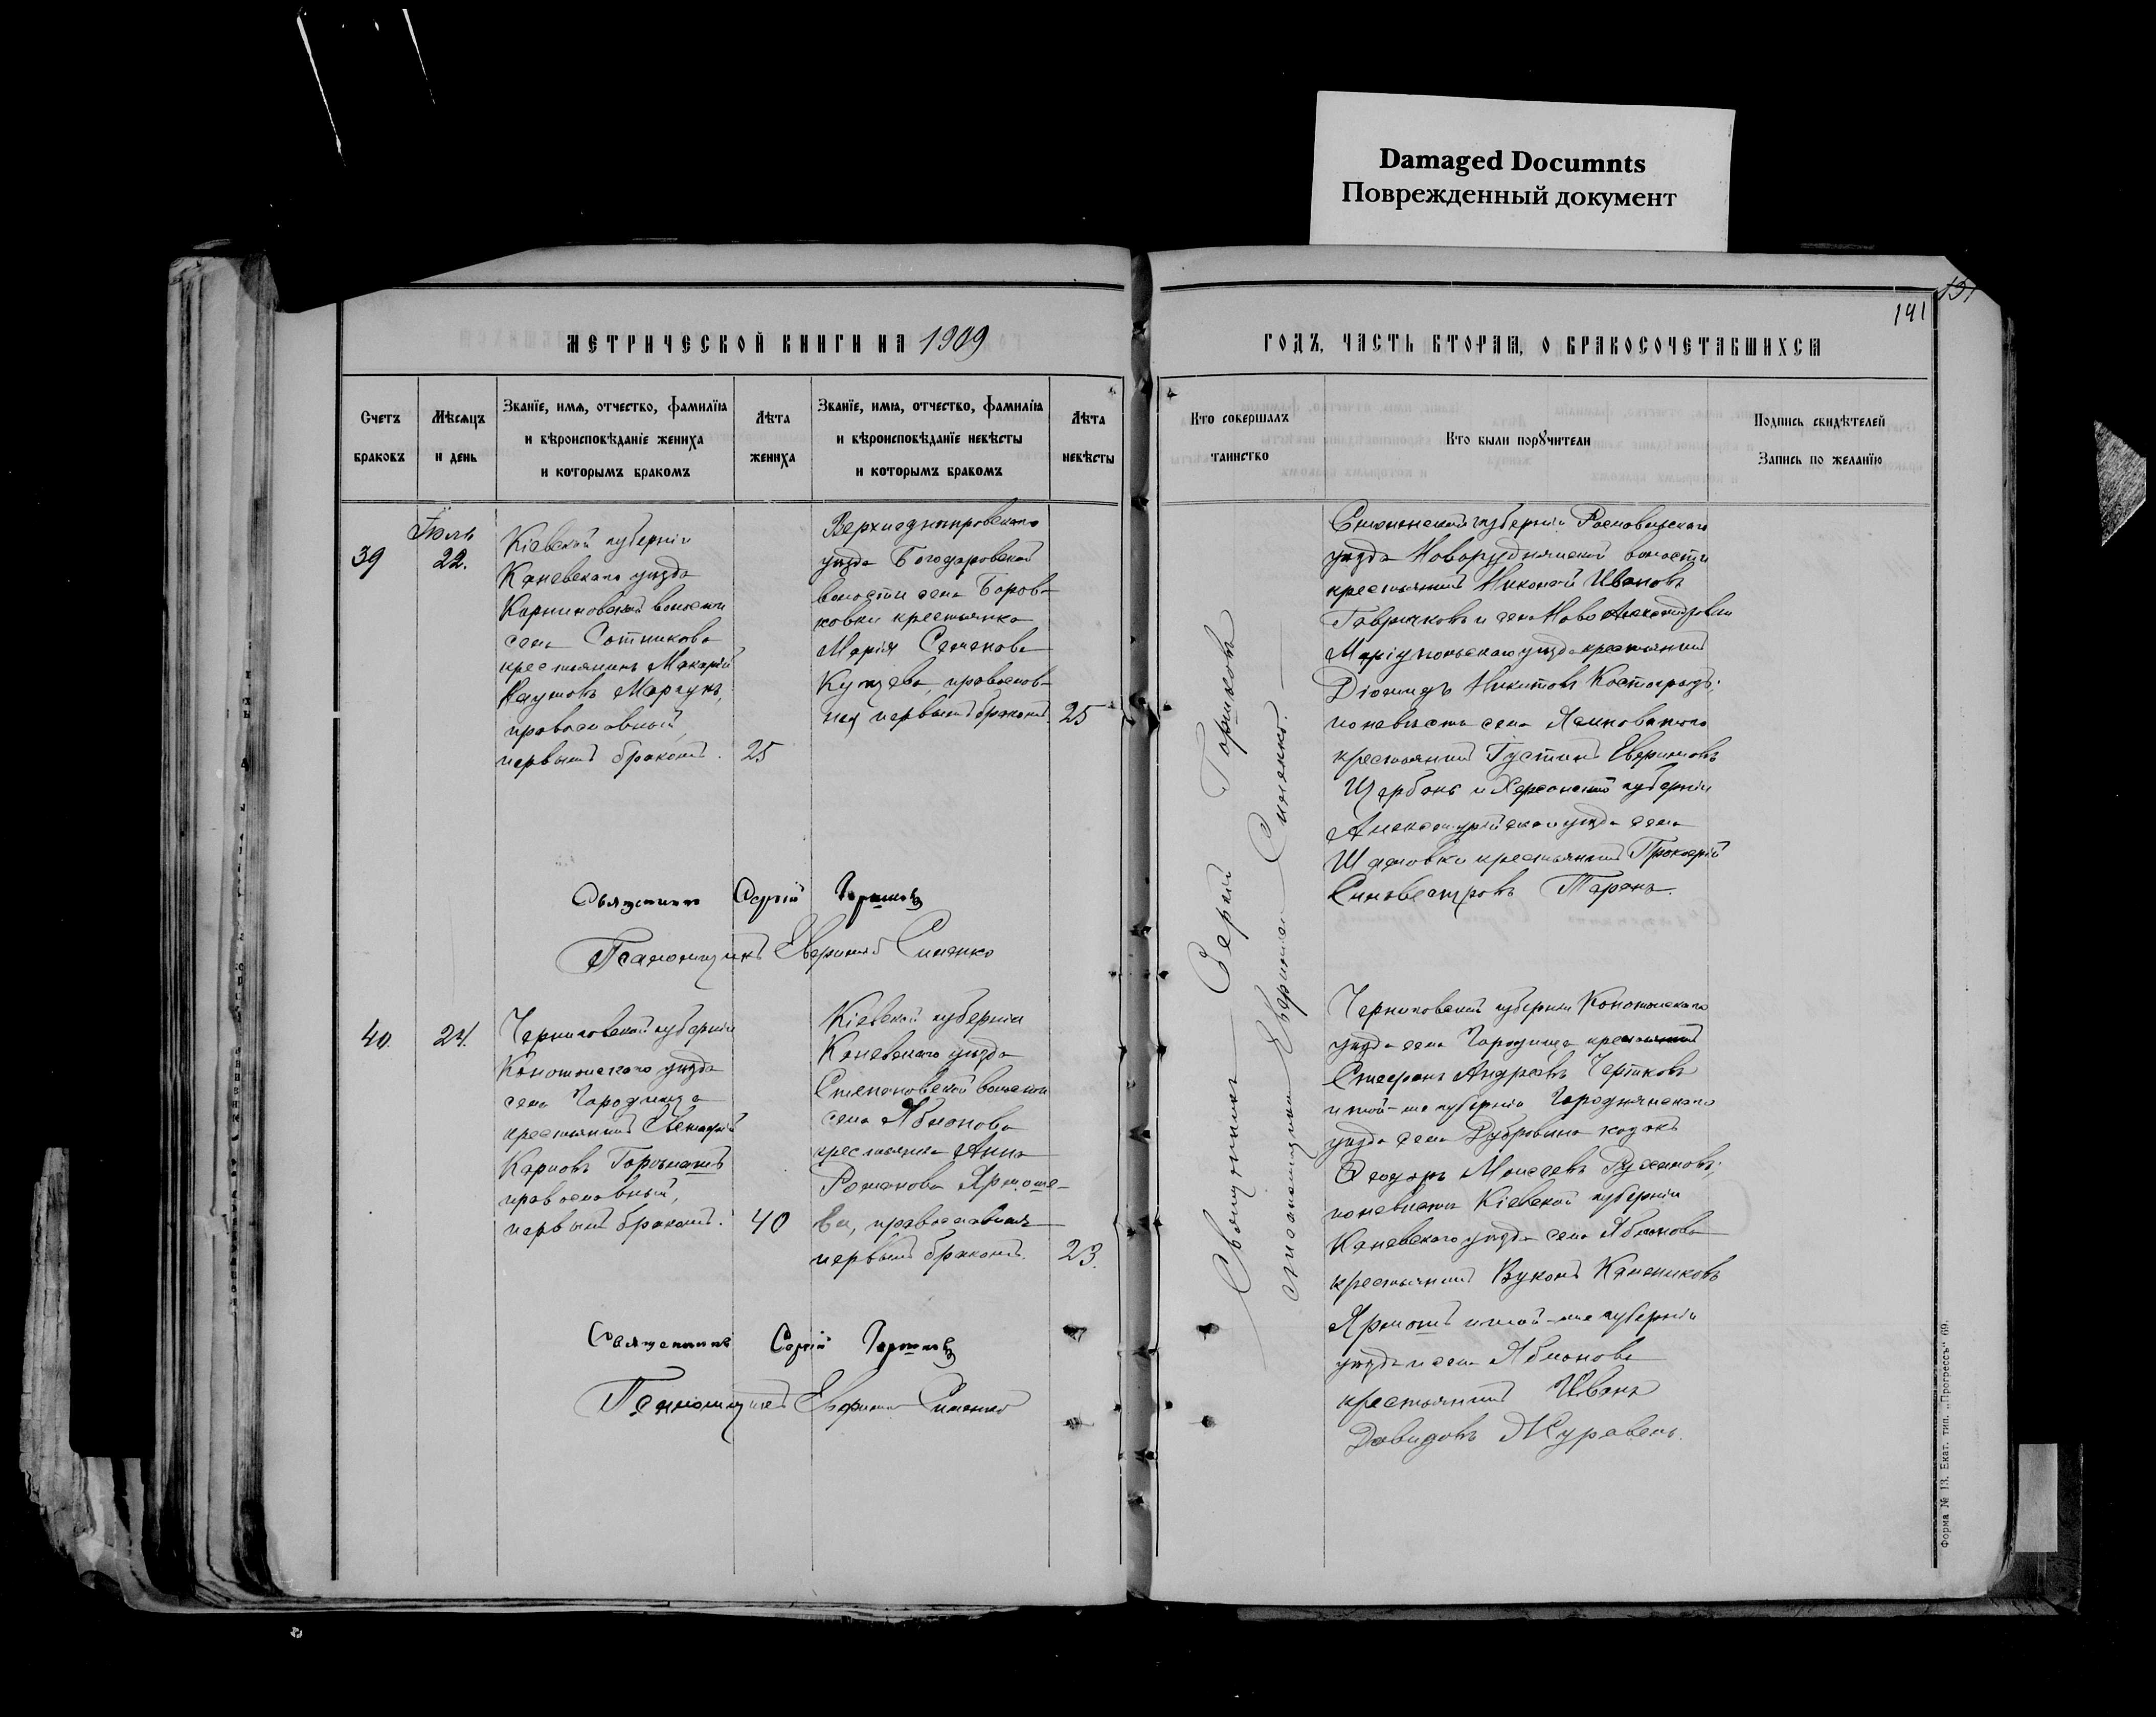 Damaged Documnts
Поврежденный документ
141
МЕТРИЧЕСКОЙ КНИГИ НА 1909
ГОДЪ, ЧАСТЬ ВТОРАЯ, О БРАКОСОЧЕТАВШИХСЯ
Счетъ браковъ
Мѣсяцъ и день
Званїе, имя, отчество, фамилїя
и вѣроисповѣданїе жениха
и которымъ бракомъ
Лѣта жениха
Званїе, имя, отчество, фамилїя
и вѣроисповѣданїе невѣсты
и которымъ бракомъ
Лѣта невѣсты
Кто совершалъ таинство
Кто были порꙋчители
Подпись свидѣтелей
Запись по желанїю
39
Іюль
22.
Кіевской губерніи
Каневскаго уѣзда
волости
села Сотникова
крестьянинъ Макарій
Наумовъ Моргунъ,
православный,
первымъ бракомъ.
25
Верхнеднѣпровскаго
уѣзда Богодаровской
волости села Боров-
ковки крестьянка
Марія Семенова
православ-
ная первымъ бракомъ.
25
Смоленской губерніи Рославльскаго
уѣзда волости
крестьянинъ Николай Ивановъ
и села Ново Александровки
Маріупольскаго уѣзда крестьянинъ
Діомидъ Никитовъ
по невѣстѣ села
крестьянинъ Іустинъ
Щербакъ и Херсонской губерніи
Александрійскаго уѣзда села
крестьянинъ Прокофій
Сильвестровъ Таранъ.
Священникъ Сергій Горшковъ
Псаломщикъ Симонко
Священникъ Сергій Горшковъ
Псаломщикъ
40.
24.
Черниговской губерніи
Конотопскаго уѣзда
села Городища
крестьянинъ
Карповъ
православный,
первымъ бракомъ.
40
Кіевской губерніи
Каневскаго уѣзда
Степановской волости
села Яблонова
крестьянка Анна
Романова Ярмоше-
ва, православная
первымъ бракомъ.
23.
Черниговской губерніи Конотопскаго
уѣзда села Городища крестьянинъ
Стефанъ Андреевъ
и той-же губерніи Городнянскаго
уѣзда села Дубровина козакъ
Ѳеодоръ Моисеевъ
по невѣстѣ Кіевской губерніи
Каневскаго уѣзда села Яблонова
крестьянинъ
Ярмошъ и той-же губерніи
уѣзда и села Яблонова
крестьянинъ Иванъ
Давидовъ Журавель.
Священникъ Сергій Горшковъ
Псаломщикъ
Форма № 13. Екат. тип. „Прогрессъ“ 69.